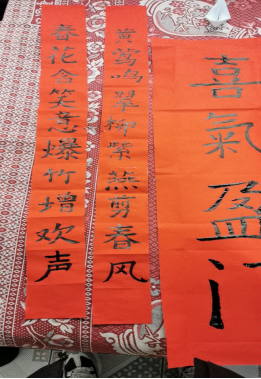 喜氣盈门
黄莺鸣翠柳紫燕剪春风
春花含笑意爆竹增欢声